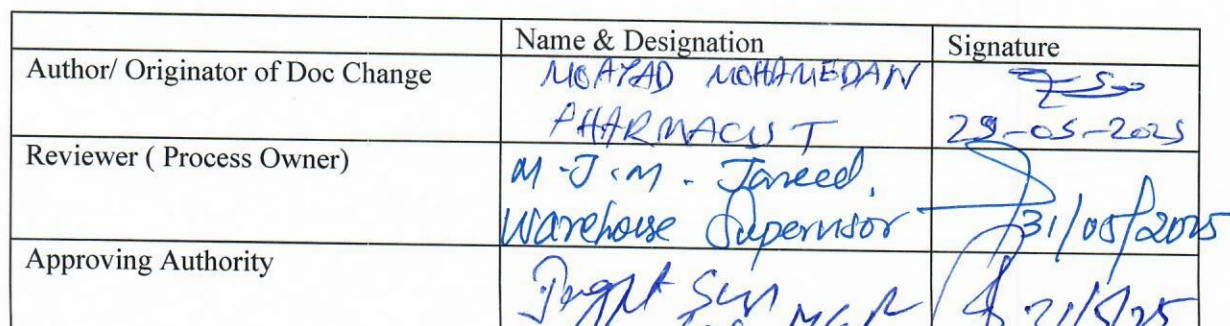 Name & Designation Signature
Author/ Originator of Doc Change MOAYAD MOHAMEDAN
PHARMACIST 29-05-2025
Reviewer ( Process Owner) M.J.M. Janeed,
Warehouse Supervisor 31/05/2025
Approving Authority 31/5/25
MGR